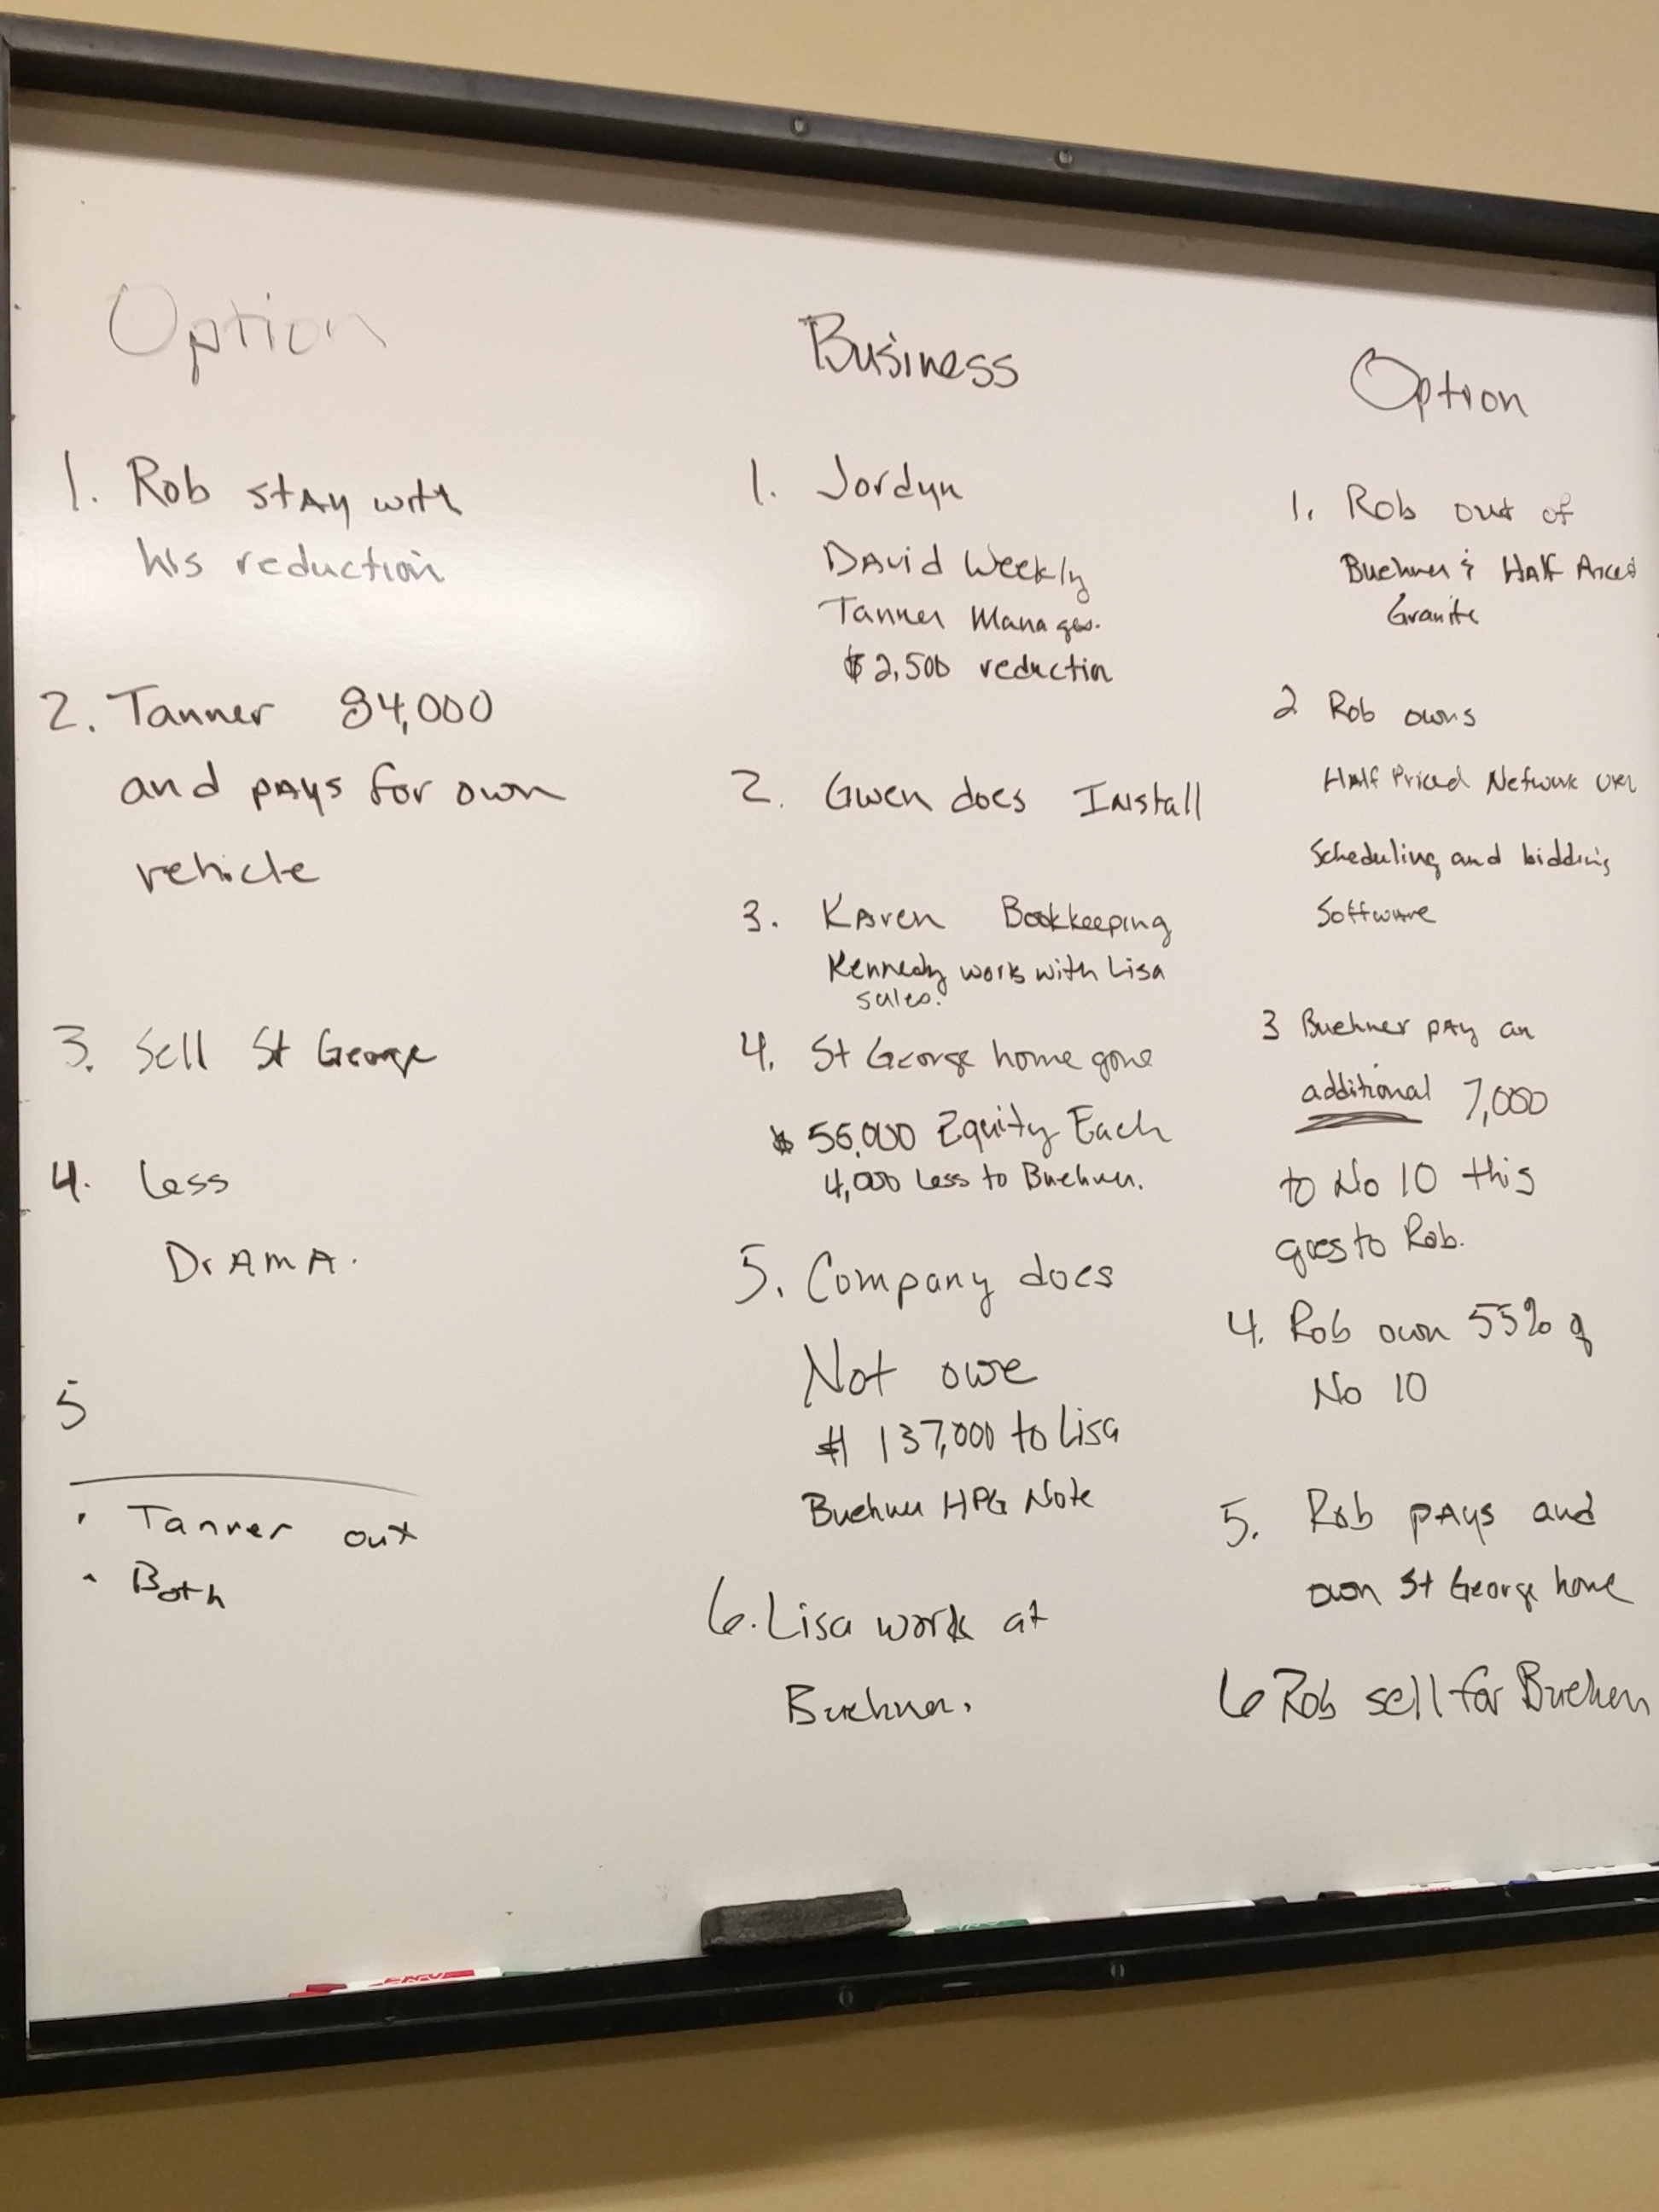 Option
1. Rob stay with
his reduction
2. Tanner 84,000
and pays for own
vehicle
3. Sell St George
4. Less
Drama.
5
• Tanner out
• Both
Business
1. Jordyn
David Weekly
Tanner Manages.
$2,500 reduction
2. Gwen does Install
3. Karen Bookkeeping
Kennedy work with Lisa
sales.
4. St George home gone
$ 55,000 Equity Each
4,000 Less to Buehner.
5. Company does
Not owe
$ 137,000 to Lisa
Buehner HPG Note
6. Lisa work at
Buehner.
Option
1. Rob out of
Buehner & Half Priced
Granite
2 Rob owns
Half Priced Network URL
Scheduling and bidding
Software
3 Buehner pay an
additional 7,000
to No 10 this
goes to Rob.
4. Rob own 55% of
No 10
5. Rob pays and
own St George home
6 Rob sell for Buehner